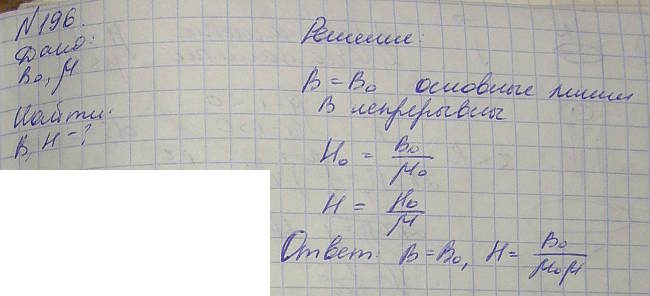 N196.
Дано:
B₀, μ
Найти:
B, H - ?
Решение:
B = B₀ основные линии
B непрерывны
H₀ = B₀/μ₀
H = H₀/μ
Ответ: B = B₀, H = B₀/μ₀μ